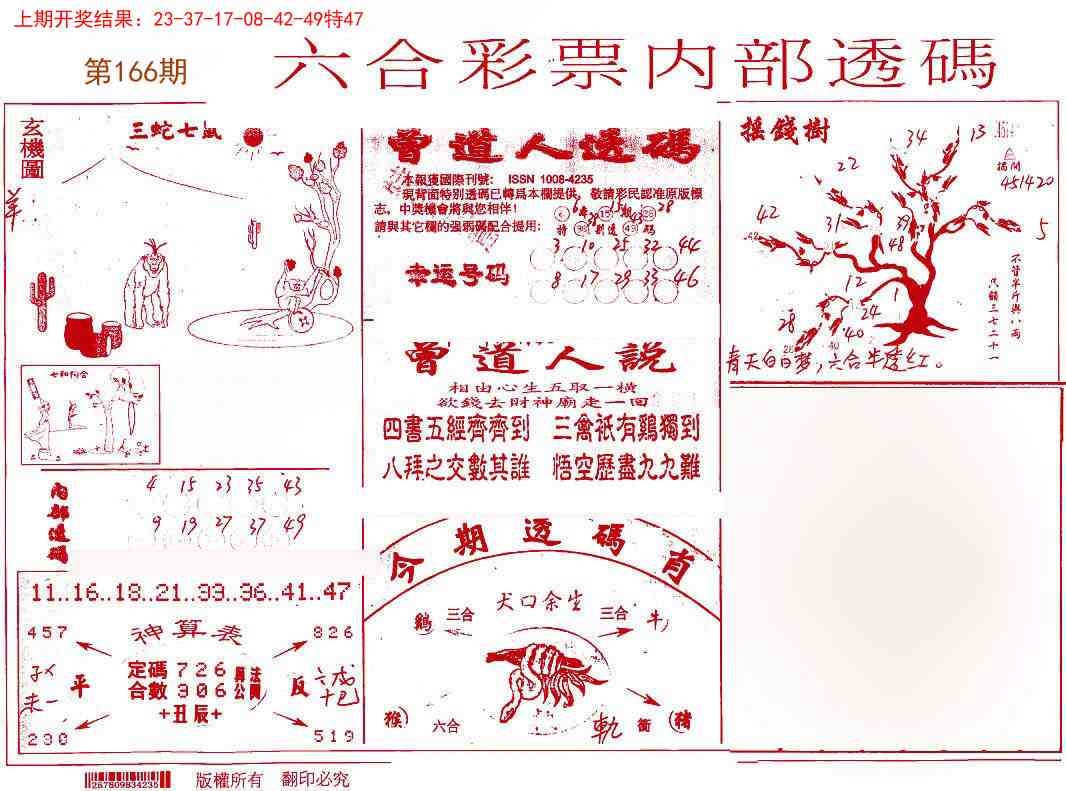 上期开奖结果：23-37-17-08-42-49特47
第166期
六合彩票内部透碼
玄機圖
三蛇七鼠
羊
七和阿合
内部透碼
4 15 23 35 43
9 19 27 37 49
曾道人透碼
本報獲國際刊號： ISSN 1008-4235
現背面特别透碼已轉爲本欄提供，敬請彩民認准原版標
志，中奬機會將與您相伴！
請與其它欄的强弱碼配合提用：
幸运号码
3 10 25 32 44
8 17 29 33 46
曾道人説
相由心生五取一横
欲錢去財神廟走一回
四書五經齊齊到 三禽祇有鷄獨到
八拜之交數其誰 悟空歷盡九九難
摇錢樹
34 13
22
42 31 39 48
451420
5
12 1
28 24
40
不管半斤與八両
青天白日梦，六合半透红。
11..16..18..21..33..36..41..47
神算表
457 826
定碼 726
合數 306
+丑辰+
平
反
230 519
今期透碼肖
犬口余生
鷄 三合 三合 牛
猴 六合 衝 豬
257809834235
版權所有 翻印必究